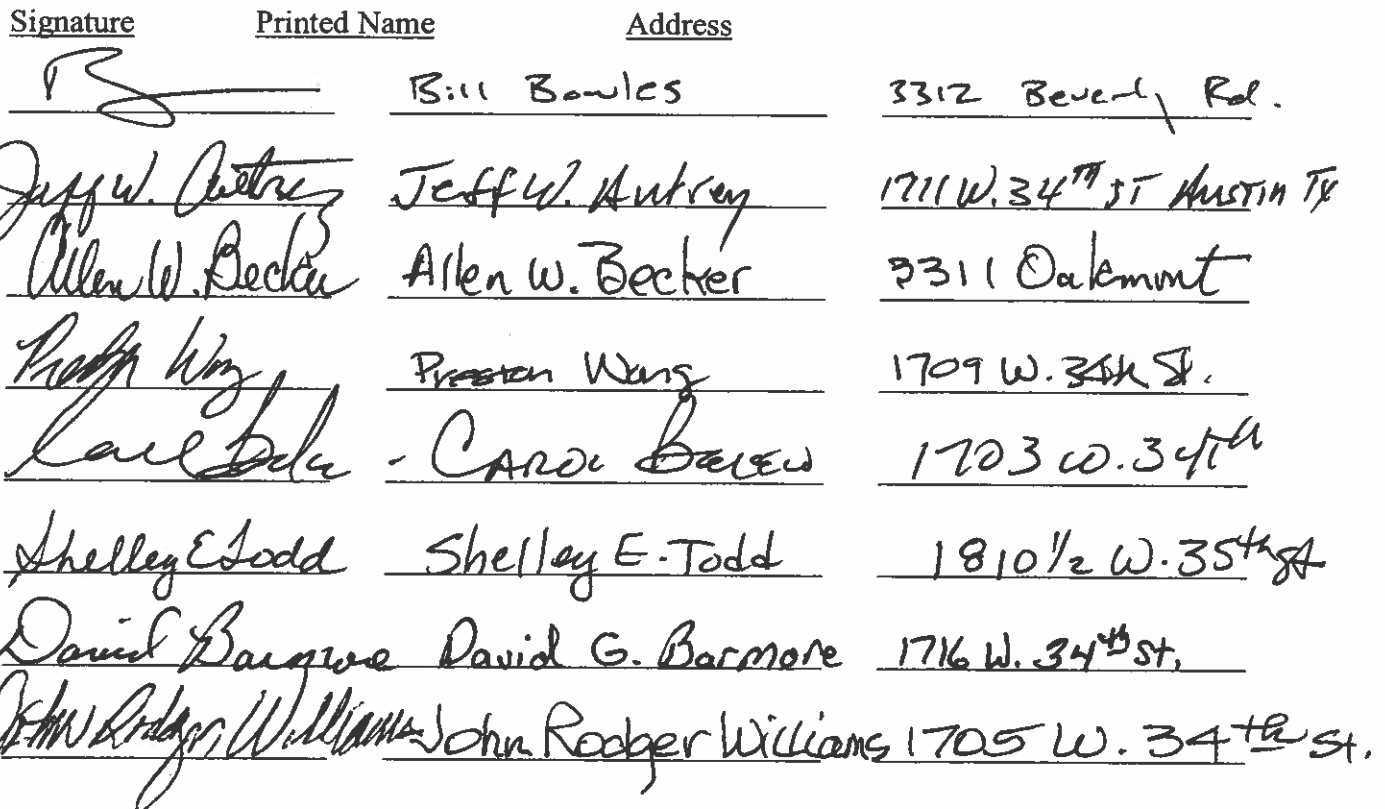 Signature Printed Name Address
Bill Bowles 3312 Beverly Rd.
Jeff W. Autrey Jeff W. Autrey 1711 W. 34TH ST Austin TX
Allen W. Becker Allen W. Becker 3311 Oakmont
Preston Wang Preston Wang 1709 W. 34th St.
Carol - CAROL BELEW 1703 W. 34th
Shelley E Todd Shelley E. Todd 1810 1/2 W. 35th st
David Barmore David G. Barmore 1716 W. 34th St.
John Rodger Williams John Rodger Williams 1705 W. 34th St.